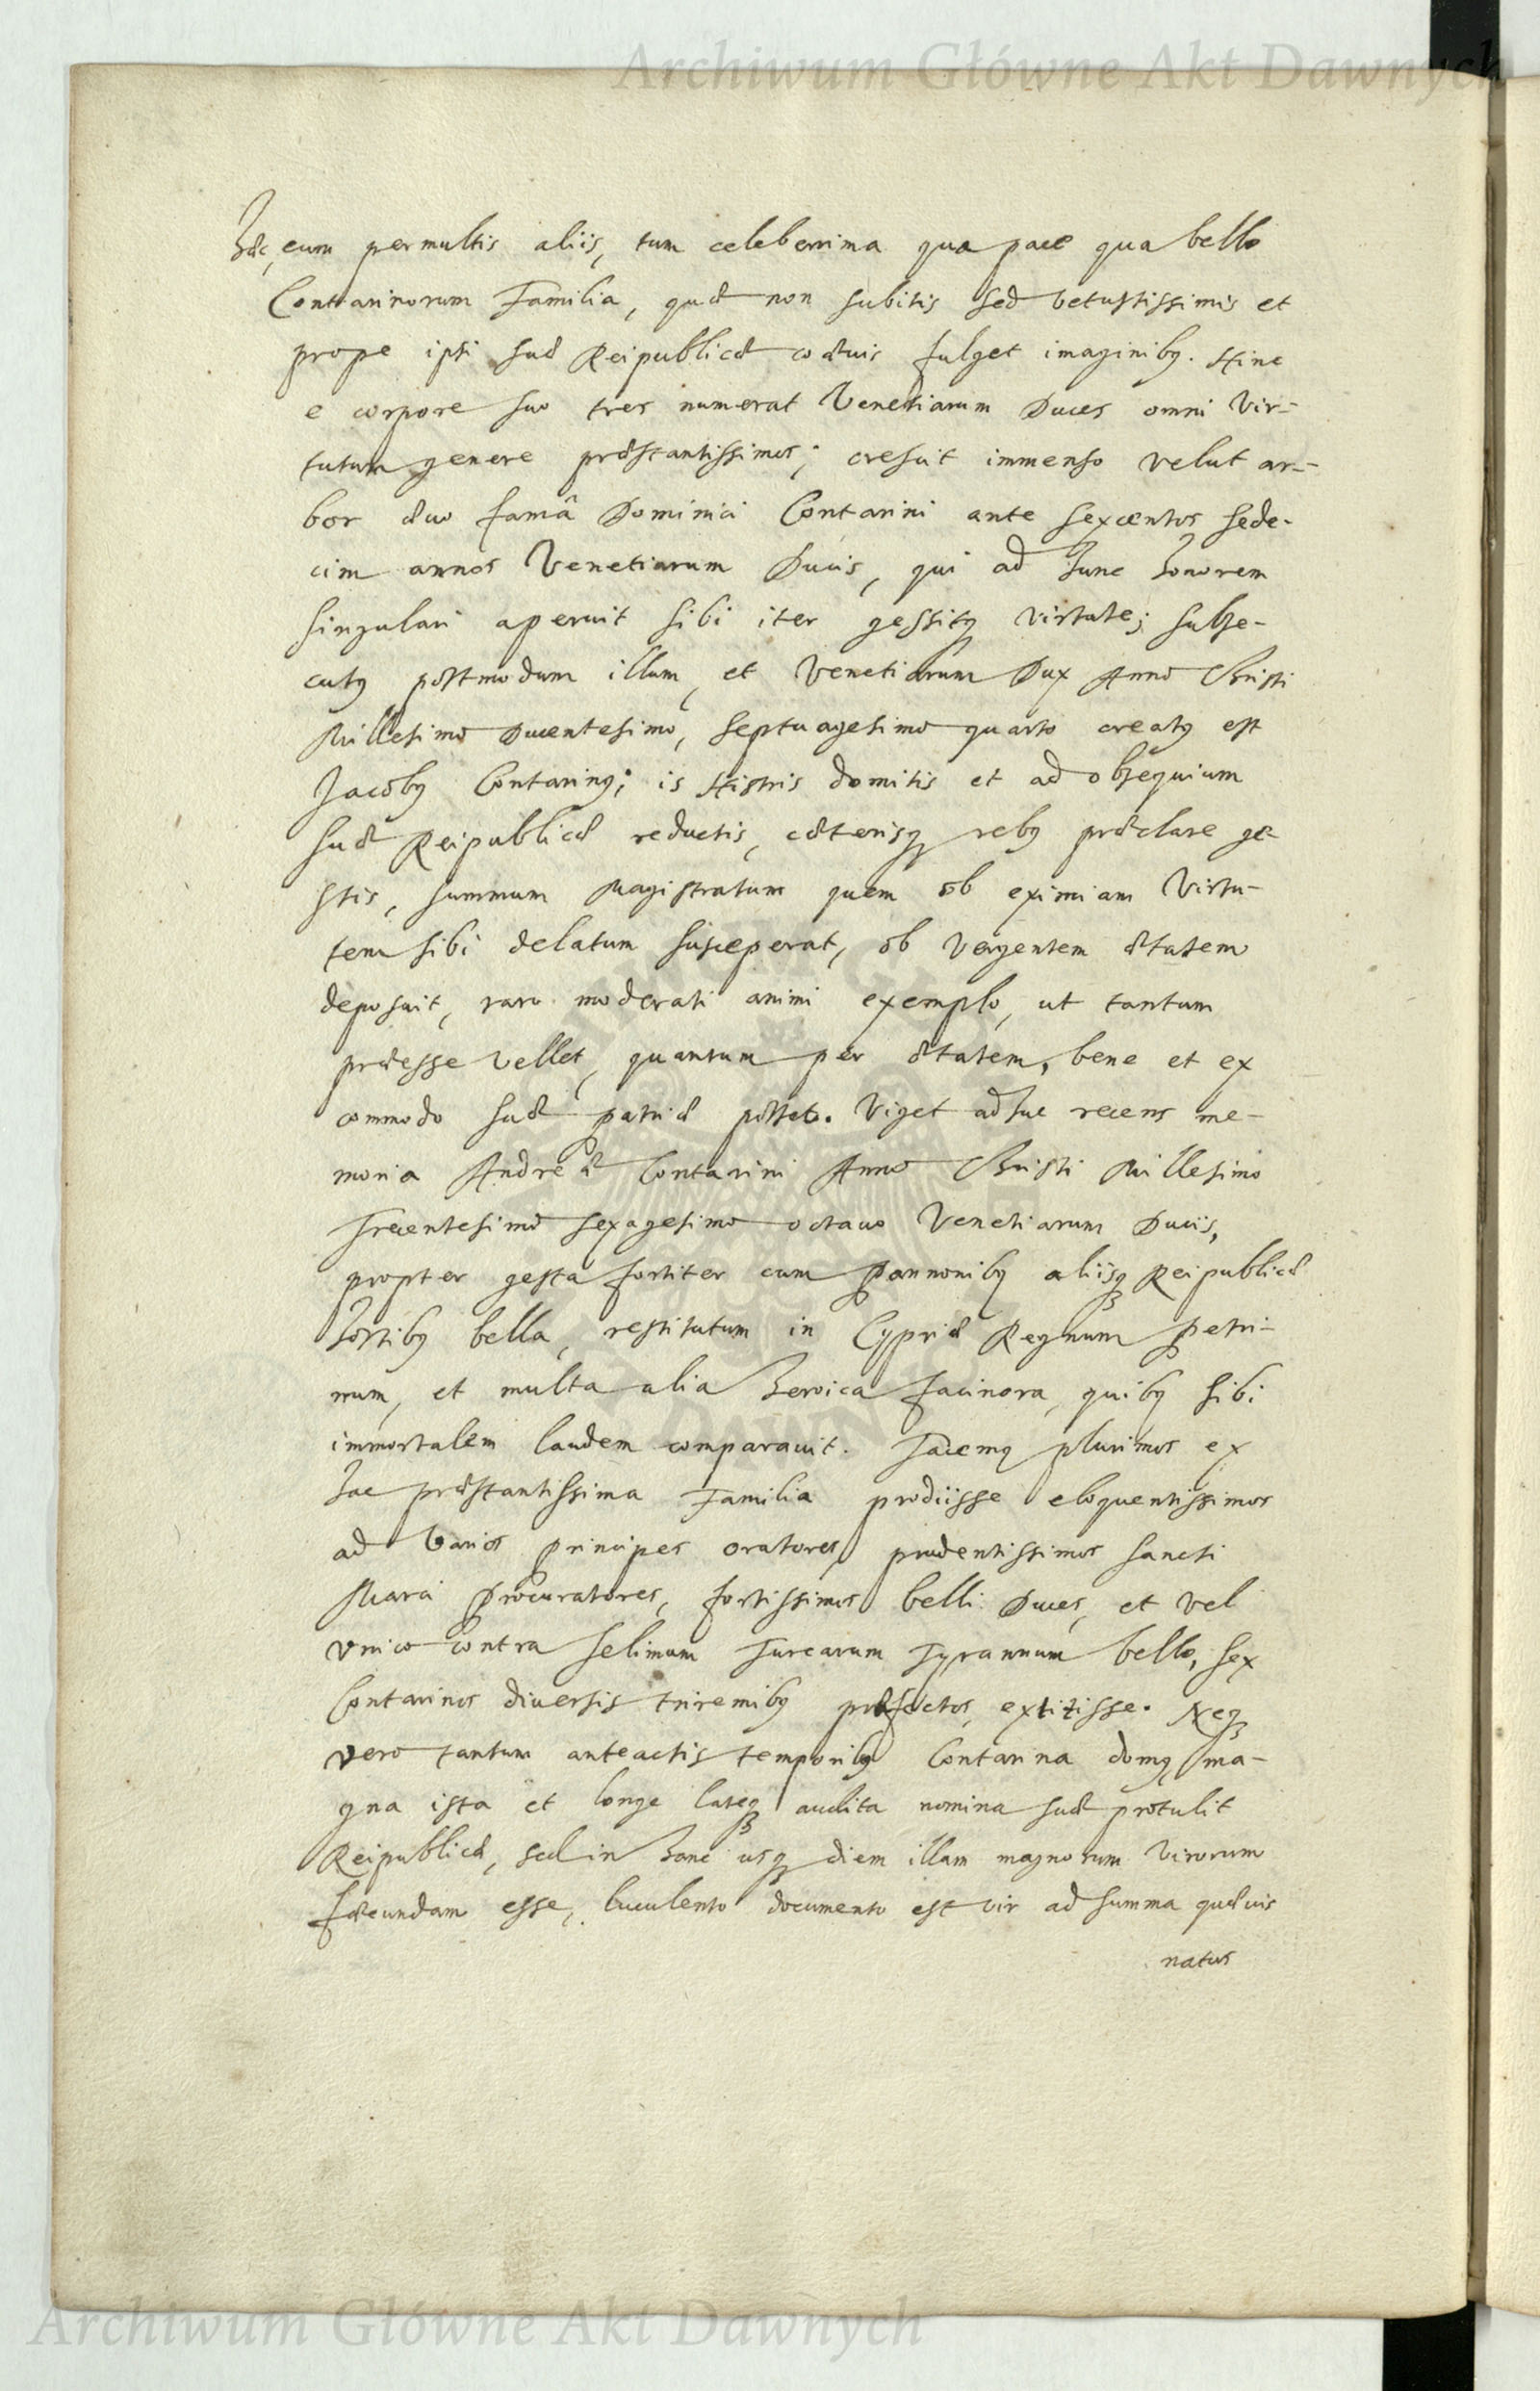 Archiwum Główne Akt Dawnych
hæc, cum permultis aliis, tum celeberrima qua pace qua bello
Contarinorum Familia, quæ non subitis sed vetustissimis et
prope ipsi suæ Reipublicæ coævis fulget imaginibq. Hinc
e corpore suo tres numerat Venetiarum Duces omni vir-
tutum genere præstantissimos; crescit immenso velut ar-
bor ævo famâ Dominici Contarini ante sexcentos sede-
cim annos Venetiarum Ducis, qui ad hunc honorem
singulari aperuit sibi iter gessitq virtute; subse-
cutq postmodum illum, et Venetiarum Dux Anno Christi
Millesimo Ducentesimo, septuagesimo quarto creatq est
Jacobq Contarinq; is Histris domitis et ad obsequium
suæ Reipublicæ reductis, cæterisq rebq præclare ge-
stis, summum Magistratum quem ob eximiam virtu-
tem sibi delatum susceperat, ob vergentem ætatem
deposuit, raro moderati animi exemplo, ut tantum
præesse vellet, quantum per ætatem, bene et ex
commodo suæ patriæ posset. Viget adhuc recens me-
moria Andreæ Contarini Anno Christi Millesimo
Trecentesimo sexagesimo octavo Venetiarum Ducis,
propter gesta fortiter cum Pannonibq aliisq Reipublicæ
hostibq bella, restitutum in Cypriæ Regnum Petri-
num, et multa alia heroica facinora, quibq sibi
immortalem laudem comparavit. Tacemq plurimos ex
hac præstantissima Familia prodiisse eloquentissimos
ad varios Principes oratores, prudentissimos sancti
Marci Procuratores, fortissimos belli Duces, et vel
vnico contra Selimum Turcarum Tyrannum bello, sex
Contarinos diversis triremibq præfectos, extitisse. Neq
vero tantum anteactis temporibq Contarina domq ma-
gna ista et longe lateq audita nomina suæ protulit
Reipublicæ, sed in hanc usq diem illam magnorum virorum
fæcundam esse, luculento documento est vir ad summa quævis
natus
Archiwum Główne Akt Dawnych